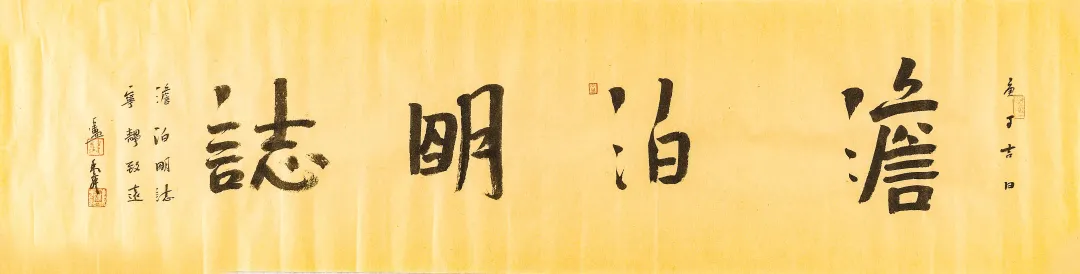 吉日
澹泊明誌
澹泊明誌
寧靜致遠